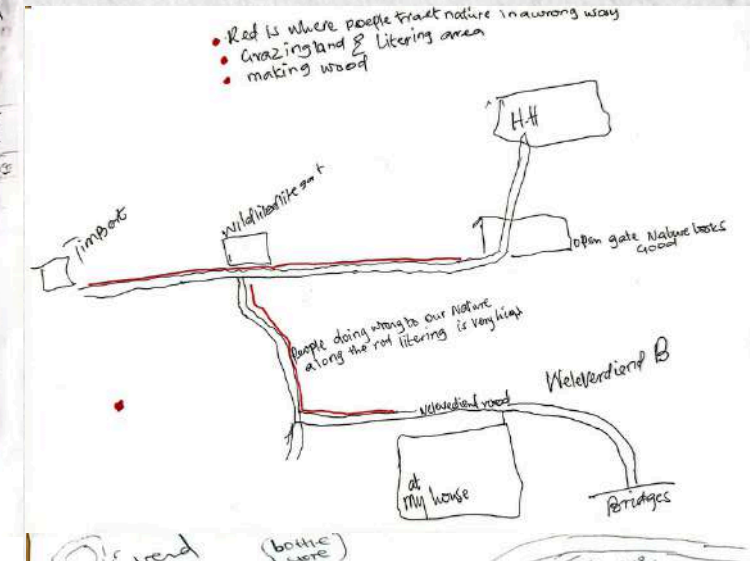 Red is where poeple treat nature in a wrong way
Grazing land & Litering area
making wood
H-H
Timbat
open gate Nature looks
Good
People doing wrong to our Nature
along the rod litering is very high
Weleverdiend B
road
at
my house
Bridges
(bottle